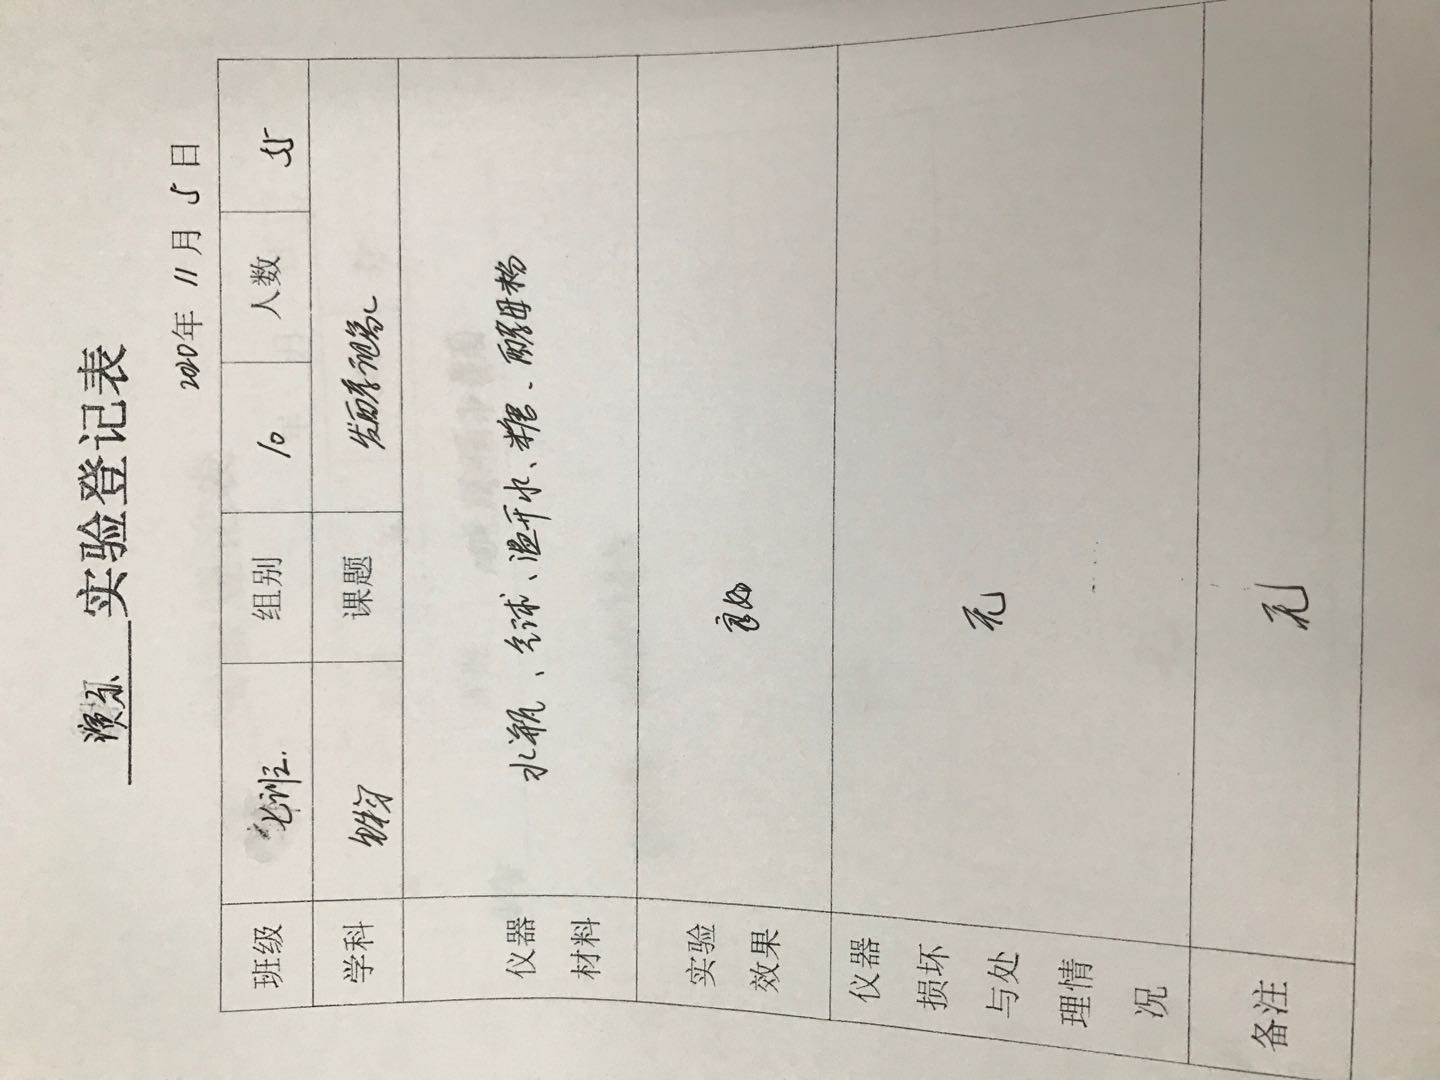 演示 实验登记表
2020年 11 月 5 日
班级 七班 组别 10 人数 55
学科 课题 发酵现象
仪器 水瓶、气球、温开水、糖、酵母粉
材料
实验 良好
效果
仪器
损坏
与处 无
理情
况
备注 无